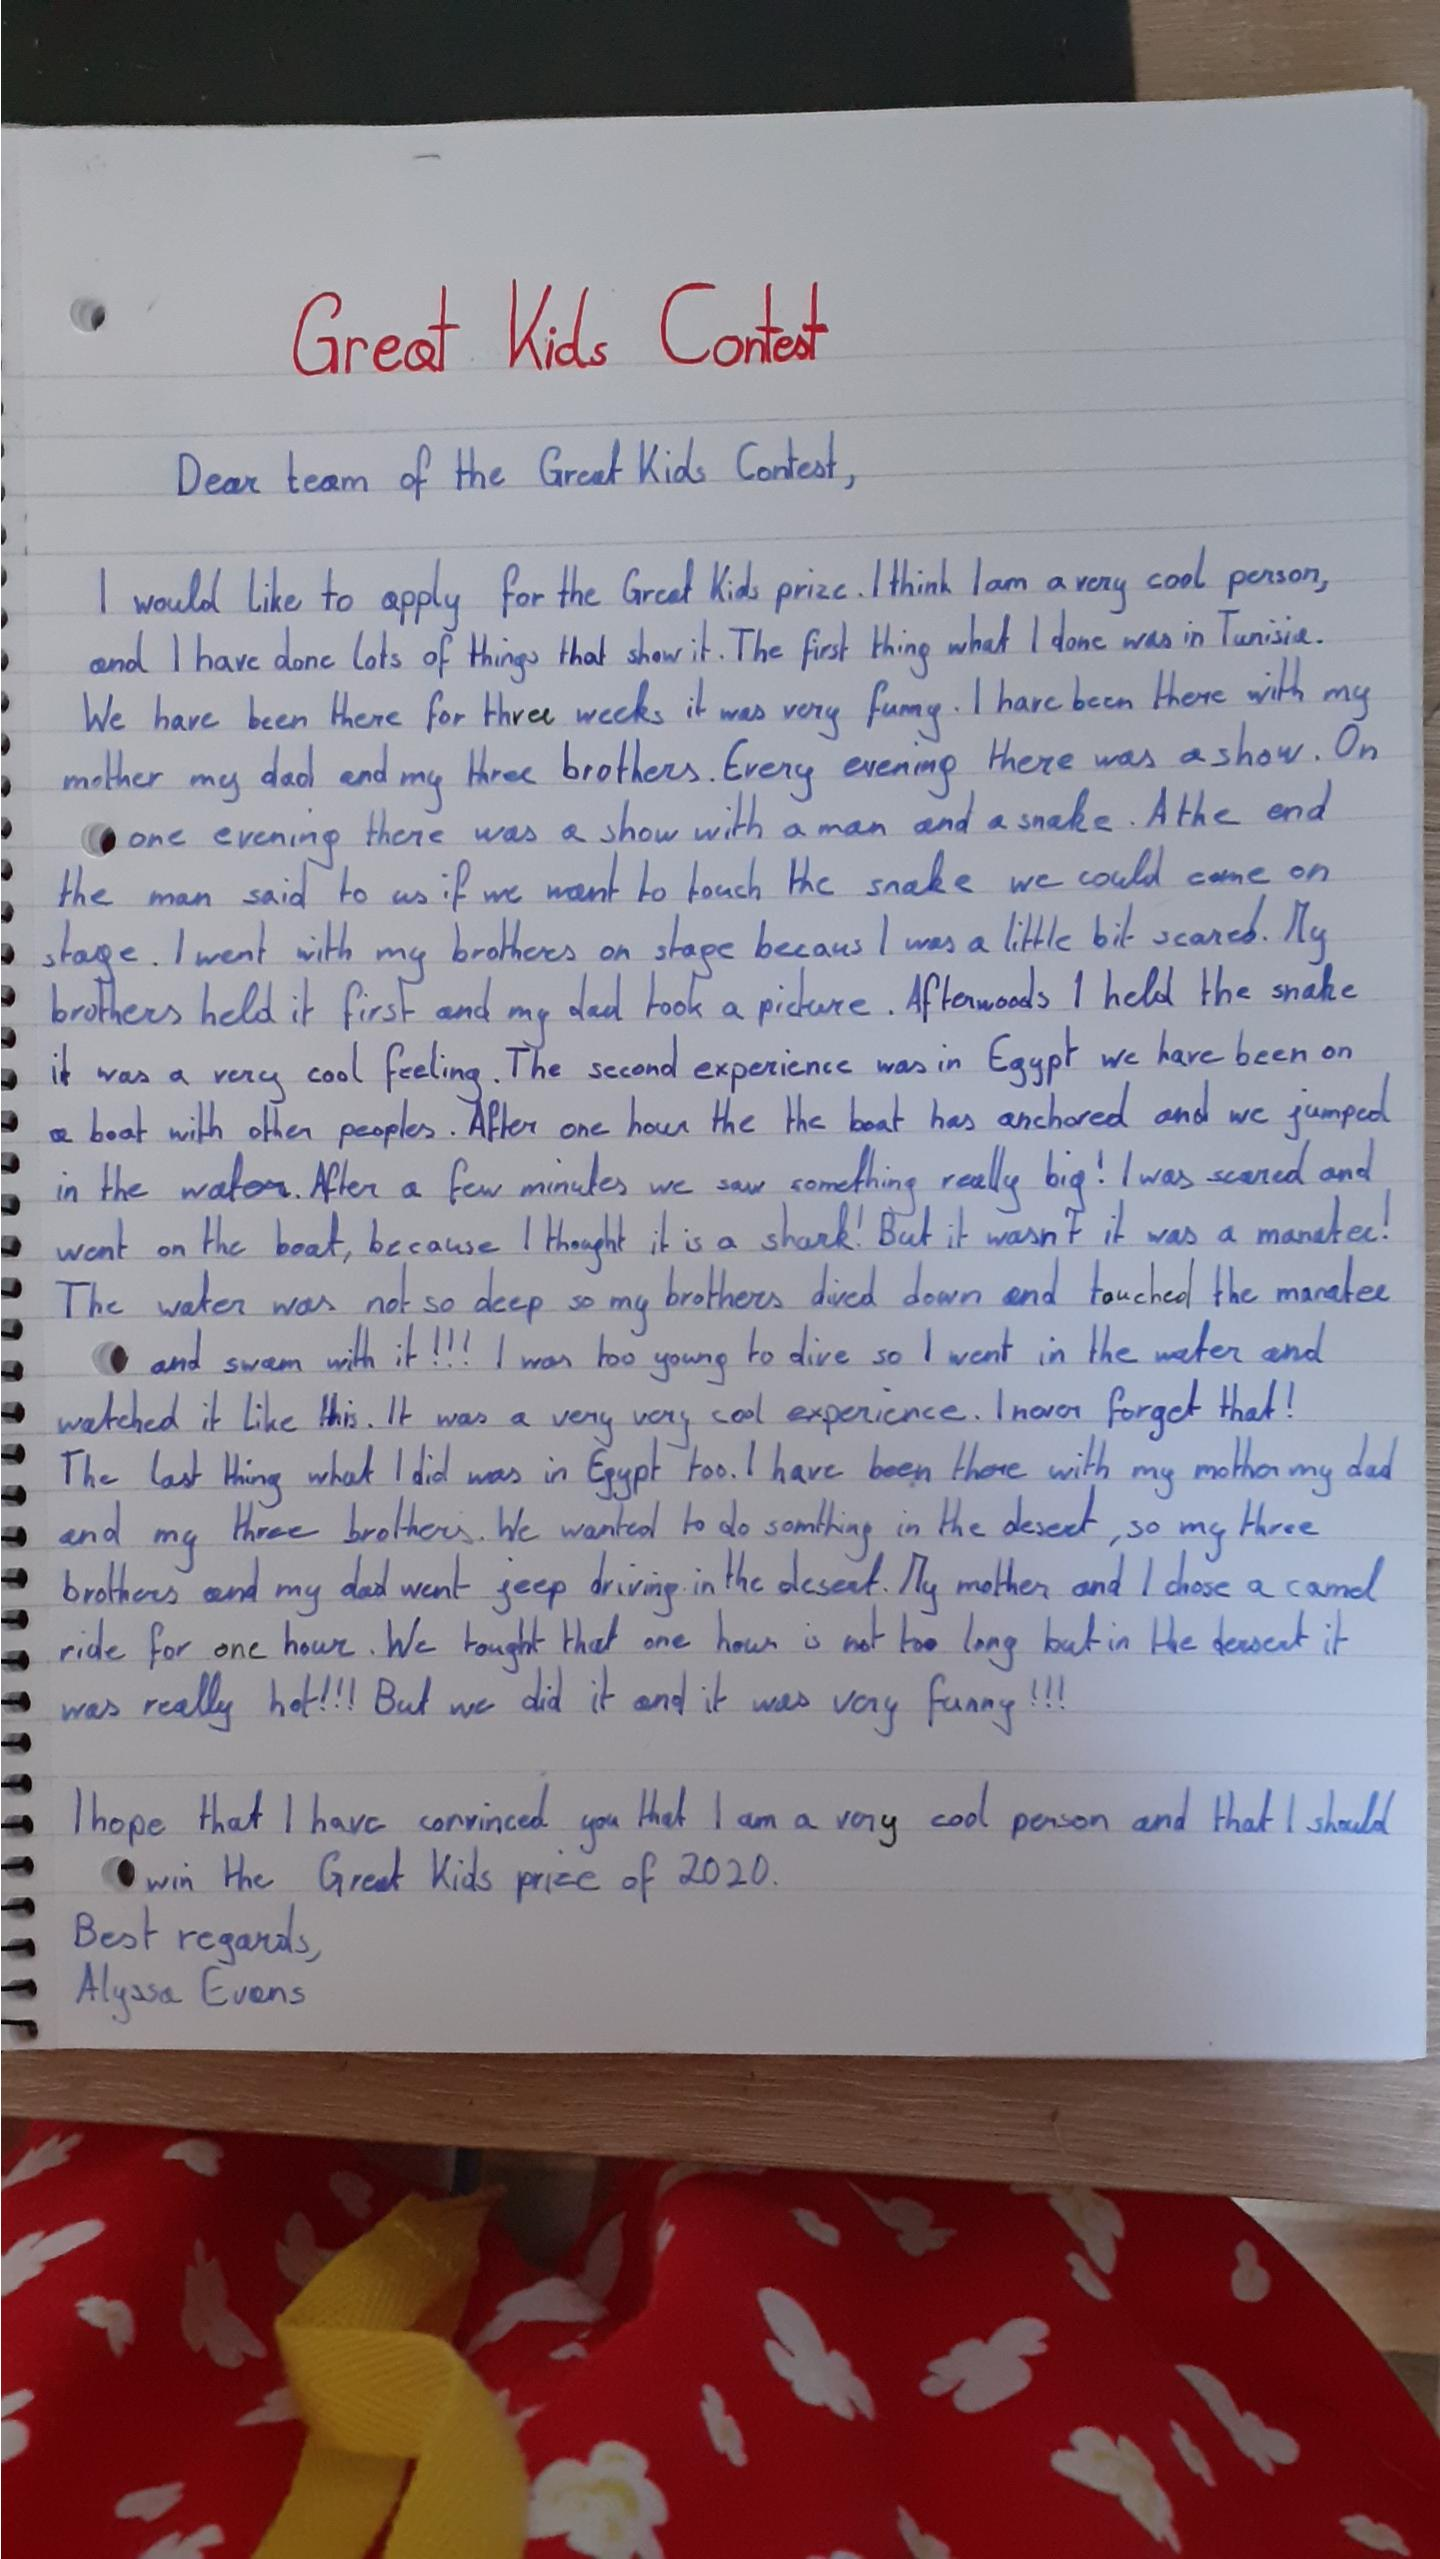 Great Kids Contest
Dear team of the Great Kids Contest,
I would like to apply for the Great Kids prize. I think I am a very cool person,
and I have done lots of things that show it. The first thing what I done was in Tunisia.
We have been there for three weeks it was very funny. I have been there with my
mother my dad and my three brothers. Every evening there was a show. On
one evening there was a show with a man and a snake. A the end
the man said to us if we want to touch the snake we could come on
stage. I went with my brothers on stage becaus I was a little bit scared. My
brothers held it first and my dad took a picture. Afterwoods I held the snake
it was a very cool feeling. The second experience was in Egypt we have been on
a boat with other peoples. After one hour the the boat has anchored and we jumped
in the water. After a few minutes we saw something really big! I was scared and
went on the boat, because I thought it is a shark! But it wasn't it was a manatee!
The water was not so deep so my brothers dived down and touched the manatee
and swam with it!!! I was too young to dive so I went in the water and
watched it like this. It was a very very cool experience. I never forget that!
The last thing what I did was in Egypt too. I have been there with my mother my dad
and my three brothers. We wanted to do somthing in the desert, so my three
brothers and my dad went jeep driving in the desert. My mother and I chose a camel
ride for one hour. We tought that one hour is not too long but in the dersert it
was really hot!!! But we did it and it was very funny!!!
I hope that I have convinced you that I am a very cool person and that I should
win the Great Kids prize of 2020.
Best regards,
Alyssa Evans